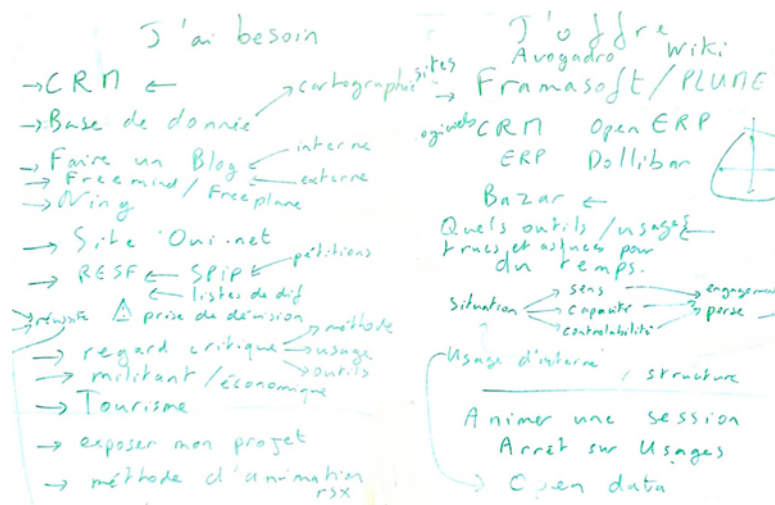 J'ai besoin
→ CRM ←
→ Base de donnée → cartographie
→ Faire un Blog ← interne
← externe
→ Freemind / Freeplane
→ Ning
→ Site Oui.net
→ RESF ← SPIP ← pétitions
← listes de dif
→ réussite ⚠ prise de décision
→ regard critique → méthode
→ usage
→ outils
→ militant / économique
→ Tourisme
→ exposer mon projet
→ méthode d'animation
rsx
J'offre
Avogadro Wiki
sites → Framasoft / PLUME
logiciels CRM Open ERP
ERP Dollibar
Bazar ←
Quels outils / usages ←
trucs et astuces pour
du temps.
Situation → sens → engagement
→ capacité → perse
→ controlabilité
Usage d'interne
/ structure
Animer une session
Arrêt sur Usages
→ Open data